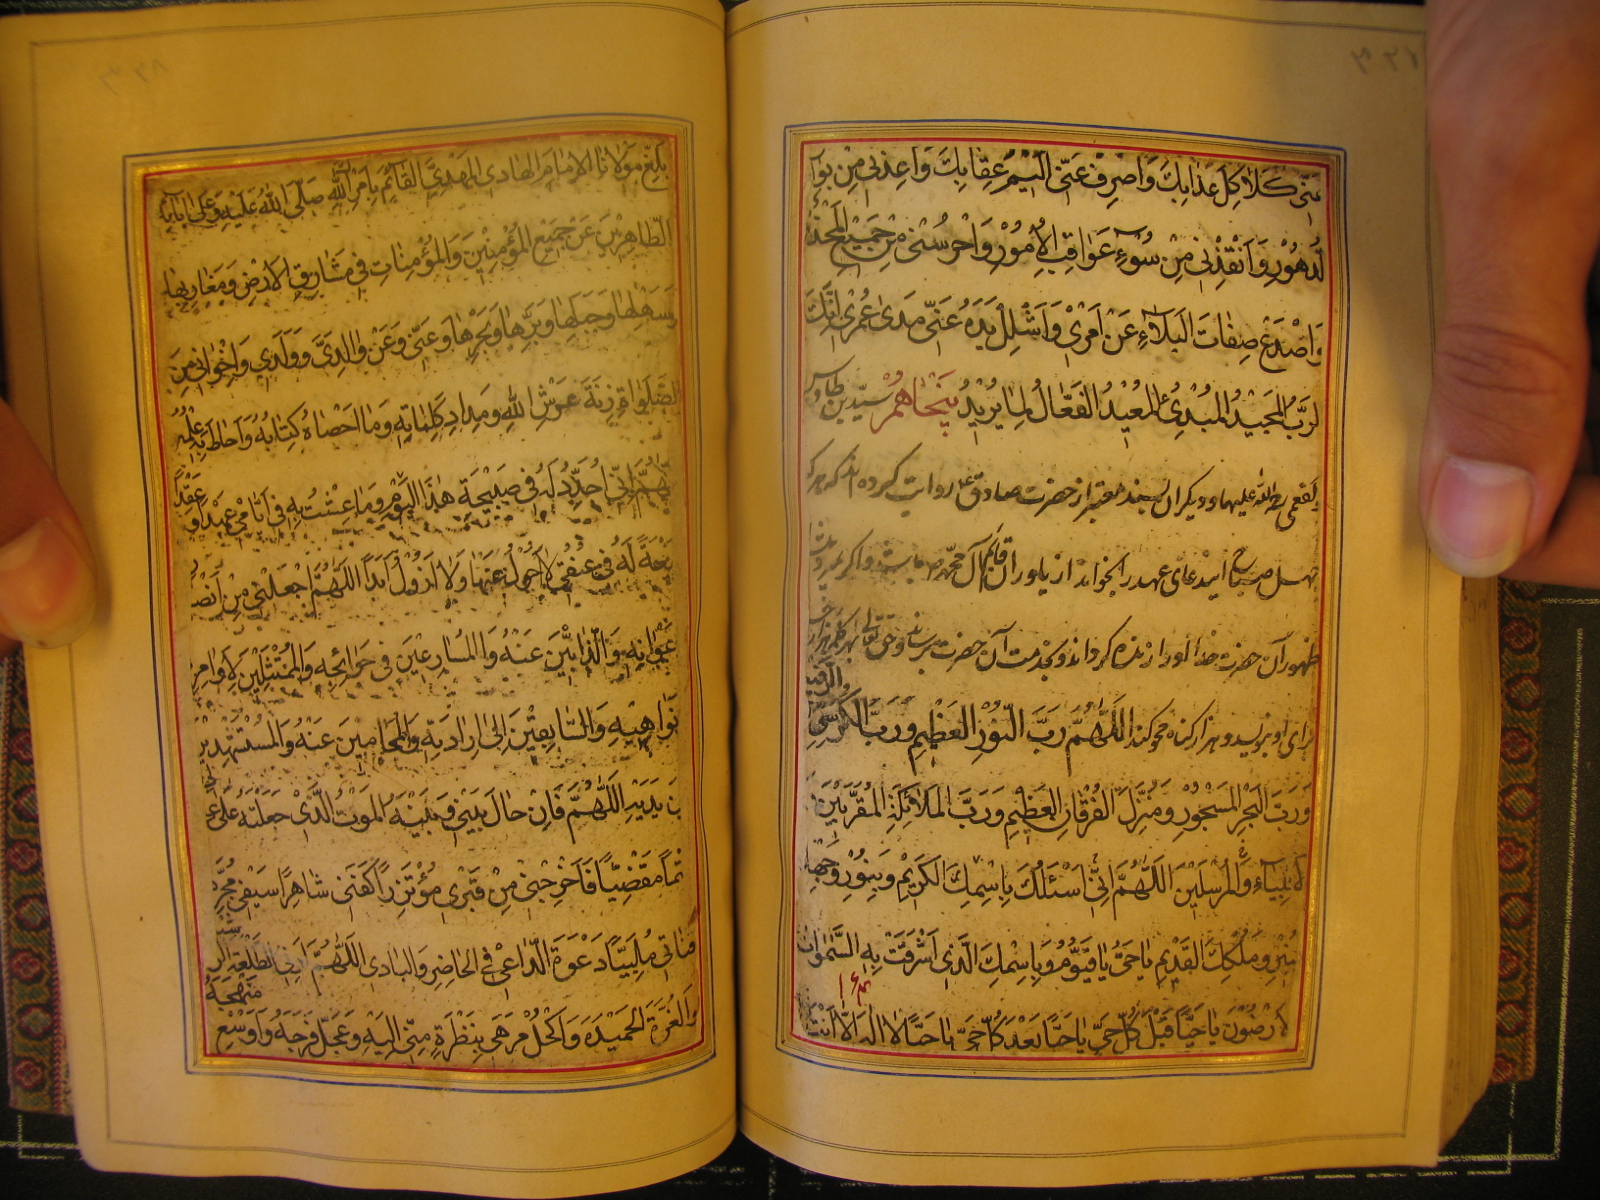 عنى كلاكل عذابك واصرف عنى اليم عقابك واعذنى من بوائق
الدهور وانقذنى من سوء عواقب الامور واحرسنى من جميع المحذور
واصدع صفات البلاء عن امرى واشلل يده عنى مدى عمرى انك
الرب المجيد المبدئ المعيد الفعال لما يريد پنجاهم سيد بن طاوس
كفعمى رحمة الله عليهما و ديگران بسند معتبر از حضرت صادق ع روايت كرده اند كه هر كه
چهل صباح اين دعاى عهد را بخواند از ياوران قائم آل محمد ص باشد و اگر
ظهور آن حضرت خدا او را زنده گرداند و بخدمت آن حضرت برساند و حق تعالى بهر كلمه هزار
براى او بنويسد و هزار گناه محو كند اللهم رب النور العظيم ورب الكرسى الرفيع
ورب البحر المسجور ومنزل الفرقان العظيم ورب الملائكة المقربين
الانبياء والمرسلين اللهم انى اسئلك باسمك الكريم وبنور وجهك
المنير وملكك القديم ياحى ياقيوم وباسمك الذى اشرقت به السموات
الارضون ياحيا قبل كل حى ياحيا بعد كل حى ياحيا لا اله الا انت
بلغ مولانا الامام الهادى المهدى القائم بامر الله صلى الله عليه وعلى ابائه
الطاهرين عن جميع المؤمنين والمؤمنات فى مشارق الارض ومغاربها
وسهلها وجبلها وبرها وبحرها وعنى وعن والدى وولدى واخوانى من
الصلوات زنة عرش الله ومداد كلماته وما احصاه كتابه واحاط به علمه
اللهم انى اجدد له فى صبيحة هذا اليوم وما عشت به فى ايامى عهدا وعقدا
بيعة له فى عنقى لا احول عنها ولا ازول ابدا اللهم اجعلنى من انصاره
اعوانه والذابين عنه والمسارعين فى حوائجه والممتثلين لاوامره
نواهيه والسابقين الى ارادته والمحامين عنه والمستشهدين
بين يديه اللهم فان حال بينى وبينه الموت الذى جعلته على
حتما مقضيا فاخرجنى من قبرى مؤتزرا كفنى شاهرا سيفى مجردا
قناتى ملبيا دعوة الداعى فى الحاضر والبادى اللهم ارنى الطلعة الرشيدة
والغرة الحميدة واكحل مرهى بنظرة منى اليه وعجل فرجه واوسع منهجه